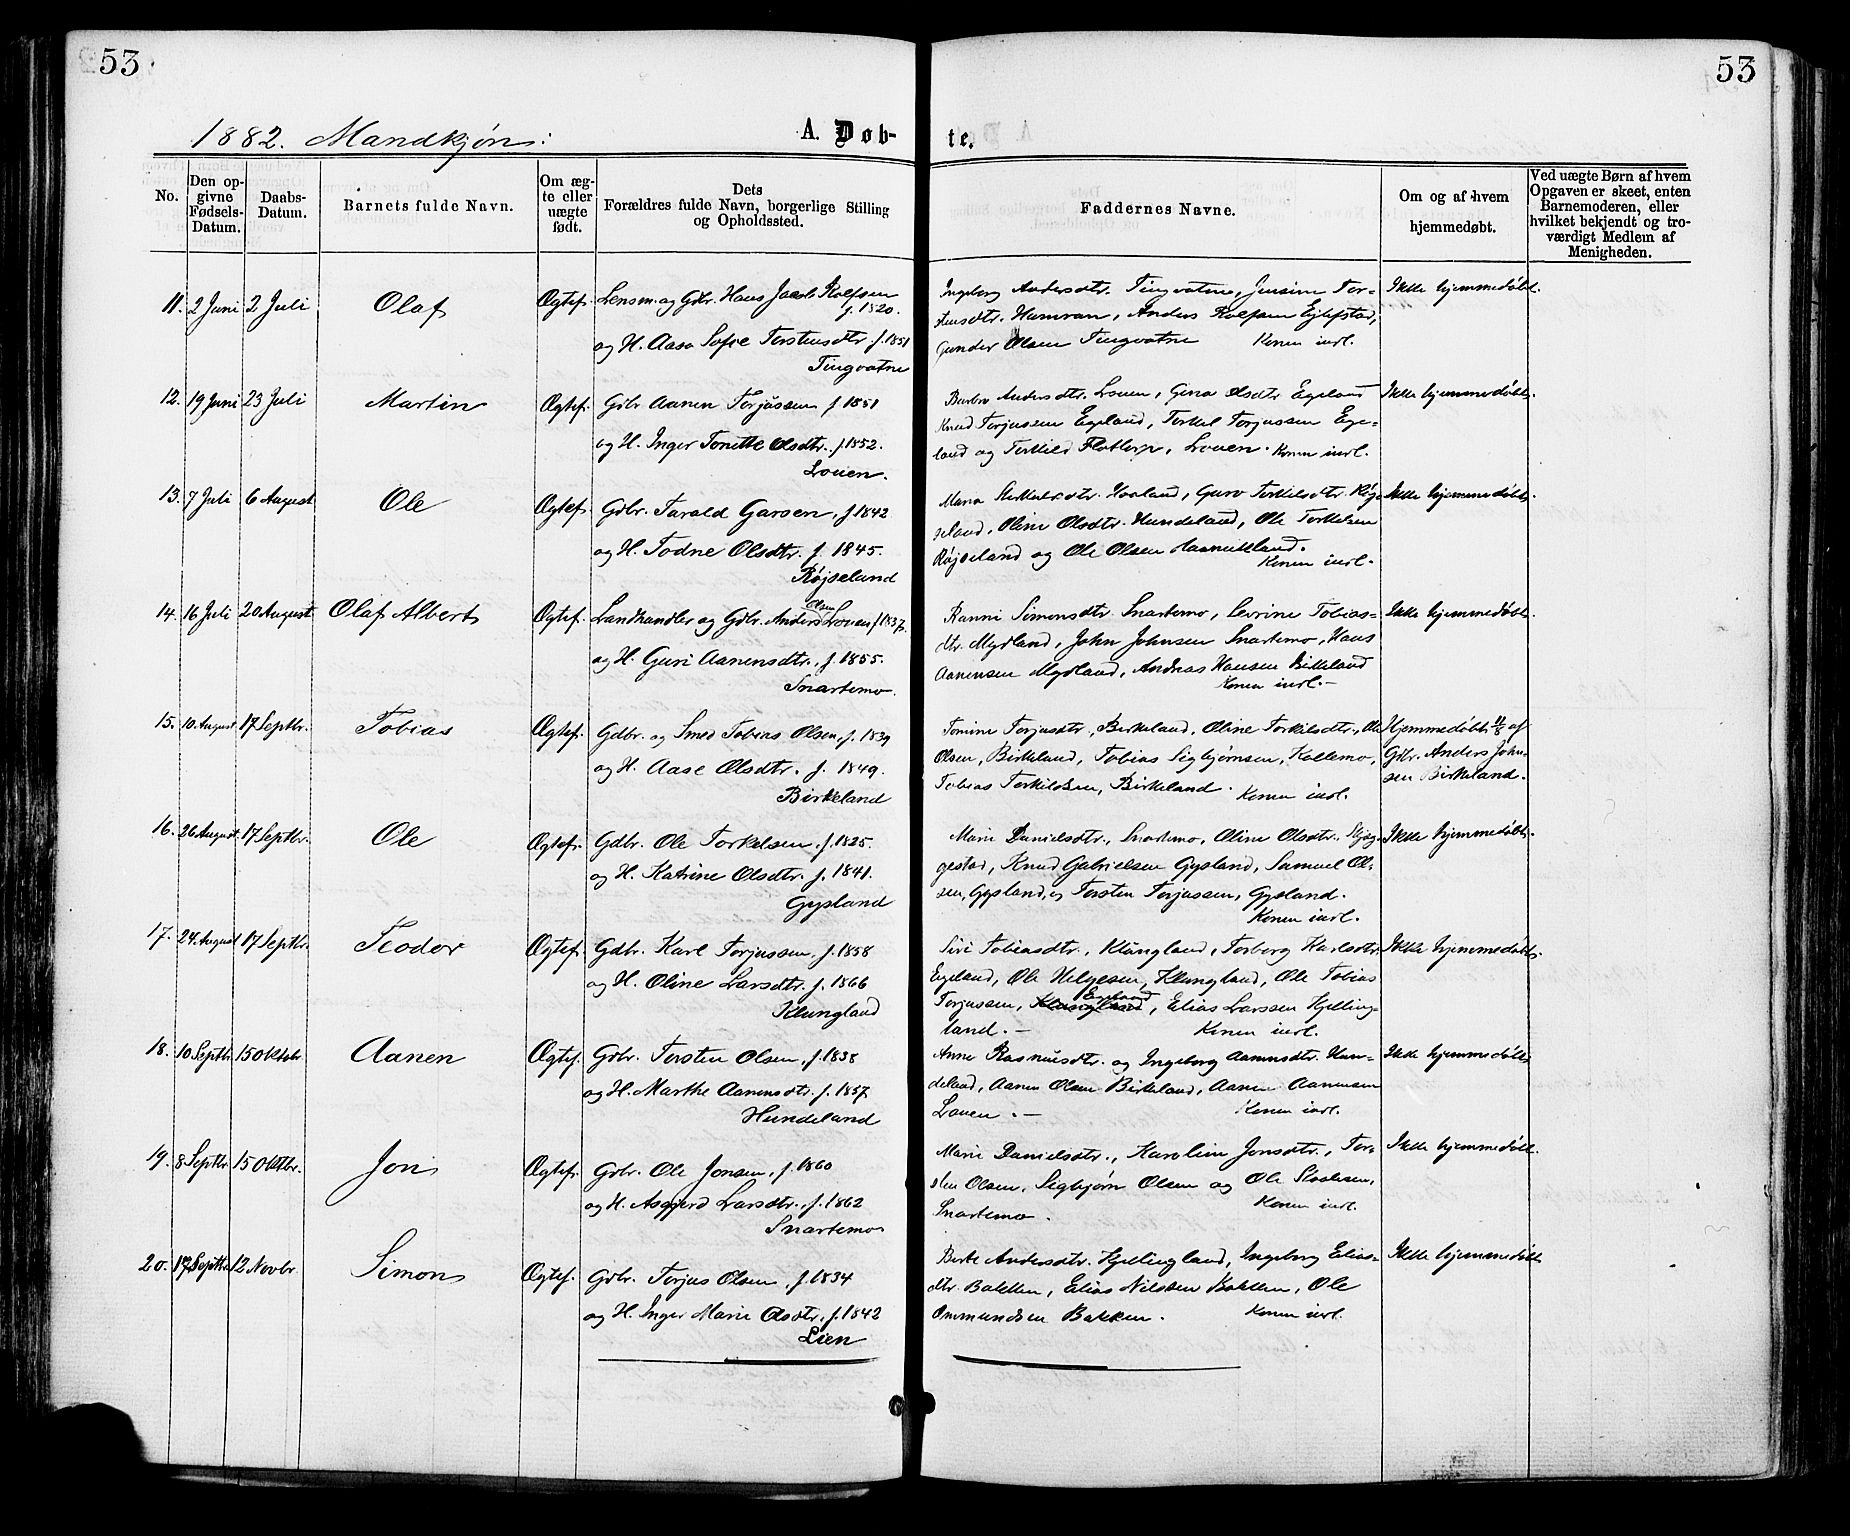 53
53
1882. Mandkjøn:
A. Døb-
te.
No.
Den op-
givne
Fødsels-
Datum.
Daabs-
Datum.
Barnets fulde Navn.
Om æg-
te eller
uægte
født.
Dets
Forældres fulde Navn, borgerlige Stilling
og Opholdssted.
Faddernes Navne.
Om og af hvem
hjemmedøbt.
Ved uægte Børn af hvem
Opgaven er skeet, enten
Barnemoderen, eller
hvilket bekjendt og tro-
værdigt Medlem af
Menigheden.
11. 2 Juni 2 Juli Olaf Ægtef. Lensm. og Gdbr. Hans Jacob Rolfsen
f. 1820.
og H. Aasa Sofie Torstensdtr f. 1851
Tingvatne
Ingeborg Andersdtr. Tingvatne, Jensine Tor-
stensdtr. Hamran, Anders Rolfsen Ejkefstad,
Gunder Olsen Tingvatne Konen indl.
Ikke hjemmedøbt.
12. 19 Juni 23 Juli Martin Ægtef. Gdbr Aanen Torjussen f 1851
og H. Inger Tonette Olsdtr. f. 1852.
Louen.
Barbro Andersdtr. Louen, Gina Olsdtr Egeland
Knud Torjussen Egeland, Torkel Torjussen Ege-
land og Torkild Flottorp, Louen. Konen indl.
Ikke hjemmedøbt.
13. 7 Juli 6 August Ole Ægtef. Gdbr. Tarald Garsen, f 1842
og H. Todne Olsdtr. f. 1845.
Røjseland
Maria Haaland, Guro Torkilsdtr. Røj-
seland, Oline Olsdtr. Hundeland, Ole Torkelsen
Røjseland og Ole Olsen
Konen indl.
Ikke hjemmedøbt.
14. 16 Juli 20 August Olaf Albert Ægtef. Landhandler og Gdbr. Anders Olsen Louen f 1837.
og H. Guri Aanensdtr., f. 1855.
Snartemo.
Ranni Simonsdtr Snartemo, Sevrine Tobias-
dtr. Mydland, John Johnsen Snartemo, Hans
Aanensen Mydland, Andreas Hansen Birkeland
Konen indl.
Ikke hjemmedøbt.
15. 10 August 17 Septbr. Tobias Ægtef. Gdbr. og Smed Tobias Olsen, f. 1839
og H. Aase Olsdtr. f. 1849.
Birkeland
Tonine Torjusdtr., Birkeland, Oline Torkilsdtr., Ole
Olsen, Birkeland, Tobias Sigbjørnsen, Kollemo,
Tobias Torkildsen, Birkeland. Konen indl.
Hjemmedøbt 11/8 af
Gdbr. Anders John-
sen Birkeland.
16. 26 August 17 Septbr. Ole Ægtef. Gdbr. Ole Torkelsen, f. 1825.
og H. Katrine Olsdtr. f. 1841.
Gysland
Marie Danielsdtr., Snartemo, Oline Olsdtr. Skjeg-
gestad, Knud Gabrielsen Gysland, Samuel Ol-
sen, Gysland, og Torsten Torjussen, Gysland.
Konen indl.
Ikke hjemmedøbt.
17. 24 August 17 Septbr. Teodor Ægtef. Gdbr. Karl Torjussen, f. 1858
og H. Oline Larsdtr. f. 1866
Klungland
Siri Tobiasdtr., Klungland, Torborg Karlsdtr.
Egeland, Ole Helgesen, Klungland, Ole Tobias
Torjussen, Klungland Egeland, Elias Larssen Kjelling-
land. Konen indl.
Ikke hjemmedøbt.
18. 10 Septbr 15 Oktobr Aanen Ægtef. Gdbr. Torsten Olsen, f. 1838
og H. Marthe Aanensdtr. f. 1857.
Hundeland
Anne Rasmusdtr. og Ingeborg Aanensdtr. Hun-
deland, Aanen Olsen Birkeland, Aanen Aanensen
Louen. Konen indl.
Ikke hjemmedøbt
19. 8 Septbr 15 Oktbr. Jon Ægtef. Gdbr. Ole Jonsen, f. 1860
og H. Asgjerd Larsdtr. f. 1862
Snartemo
Marie Danielsdtr., Karoline Jonsdtr., Tor-
sten Olsen, Sigbjørn Olsen og Ole
Snartemo. Konen indl.
Ikke hjemmedøbt.
20. 17 Septbr 12 Novbr. Simon Ægtef. Gdbr. Torjus Olsen, f. 1834
og H. Inger Marie Olsdtr. f. 1842
Lien
Berte Andersdtr. Kjellingland, Ingeborg Elias-
dtr. Bakken, Elias Nilssen Bakken, Ole
Ommundsen Bakken. Konen indl.
Ikke hjemmedøbt